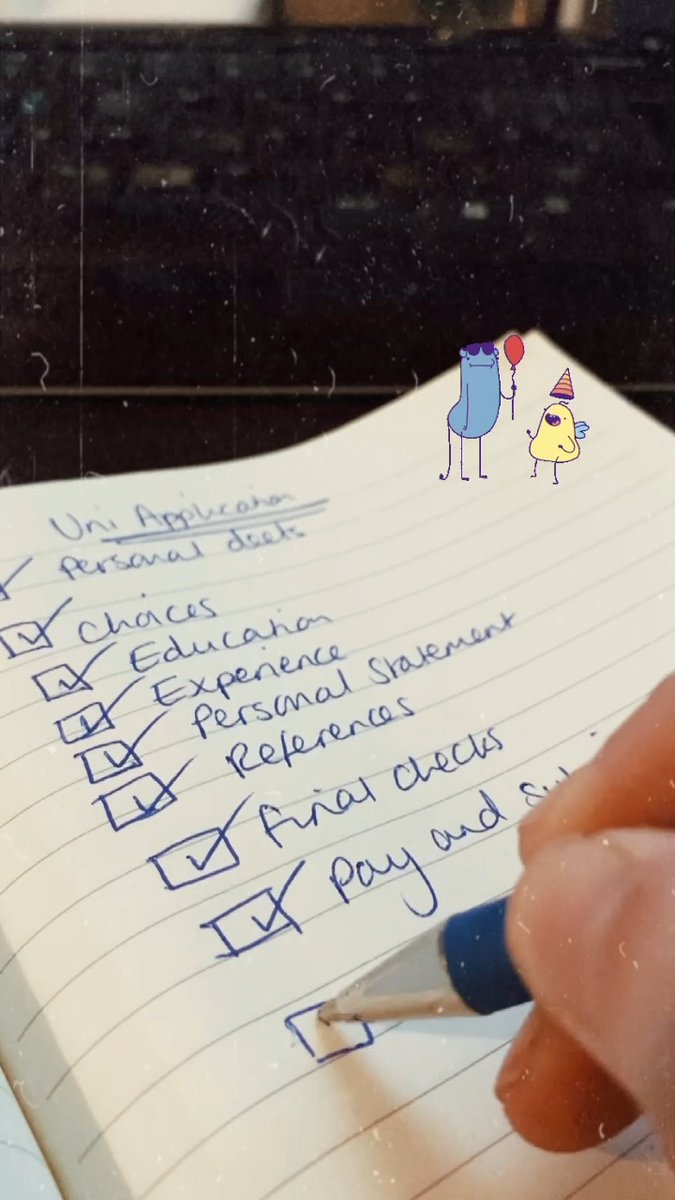 Uni Application
Personal deets
Choices
Education
Experience
Personal Statement
References
Final checks
Pay and